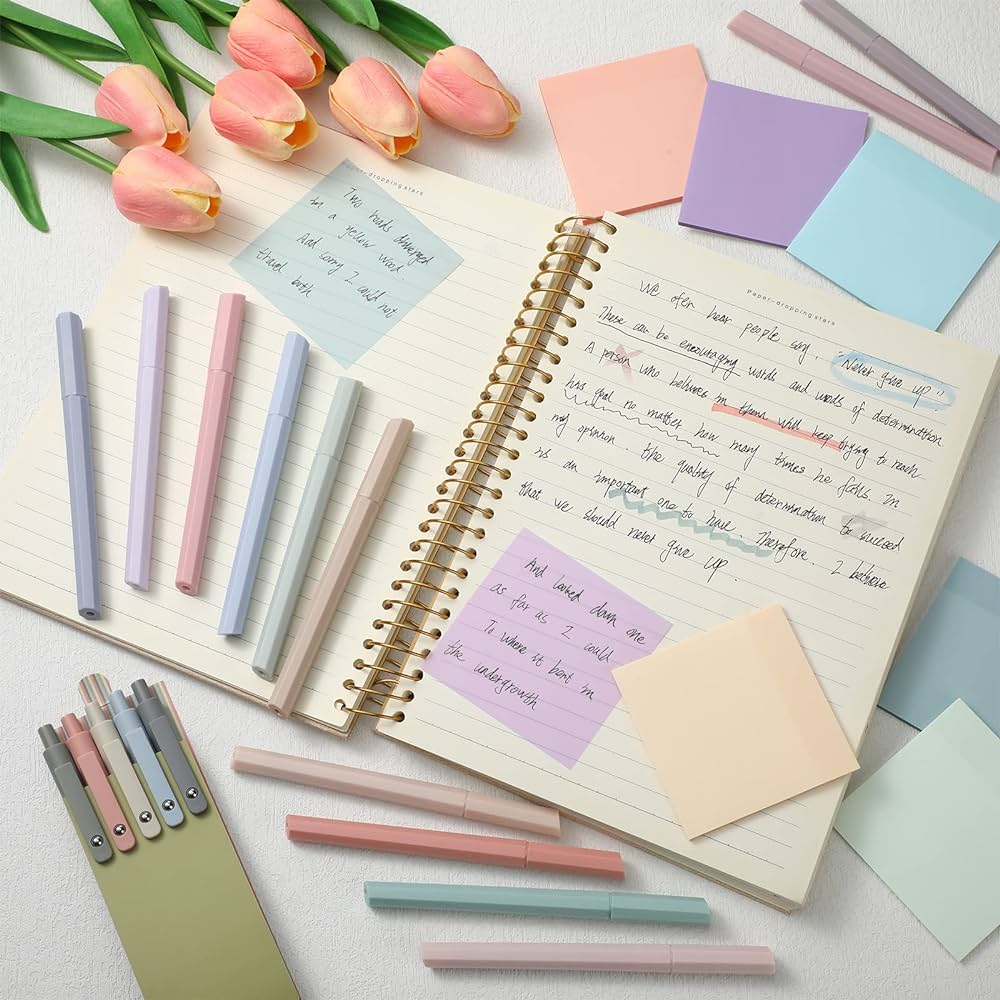 Paper-dropping stars
Two roads diverged
in a yellow wood.
And sorry I could not
travel both
Paper-dropping stars
We ofen hear people say, "Never give up"
These can be encouraging words and words of determination.
A person who believes in them will keep trying to reach
his goal no matter how many times he fails. In
my opinion. the quality of determination to succeed
is an important one to have. Therefore. I believe
that we should never give up.
And looked down one
as far as I could
To where it bent in
the undergrowth